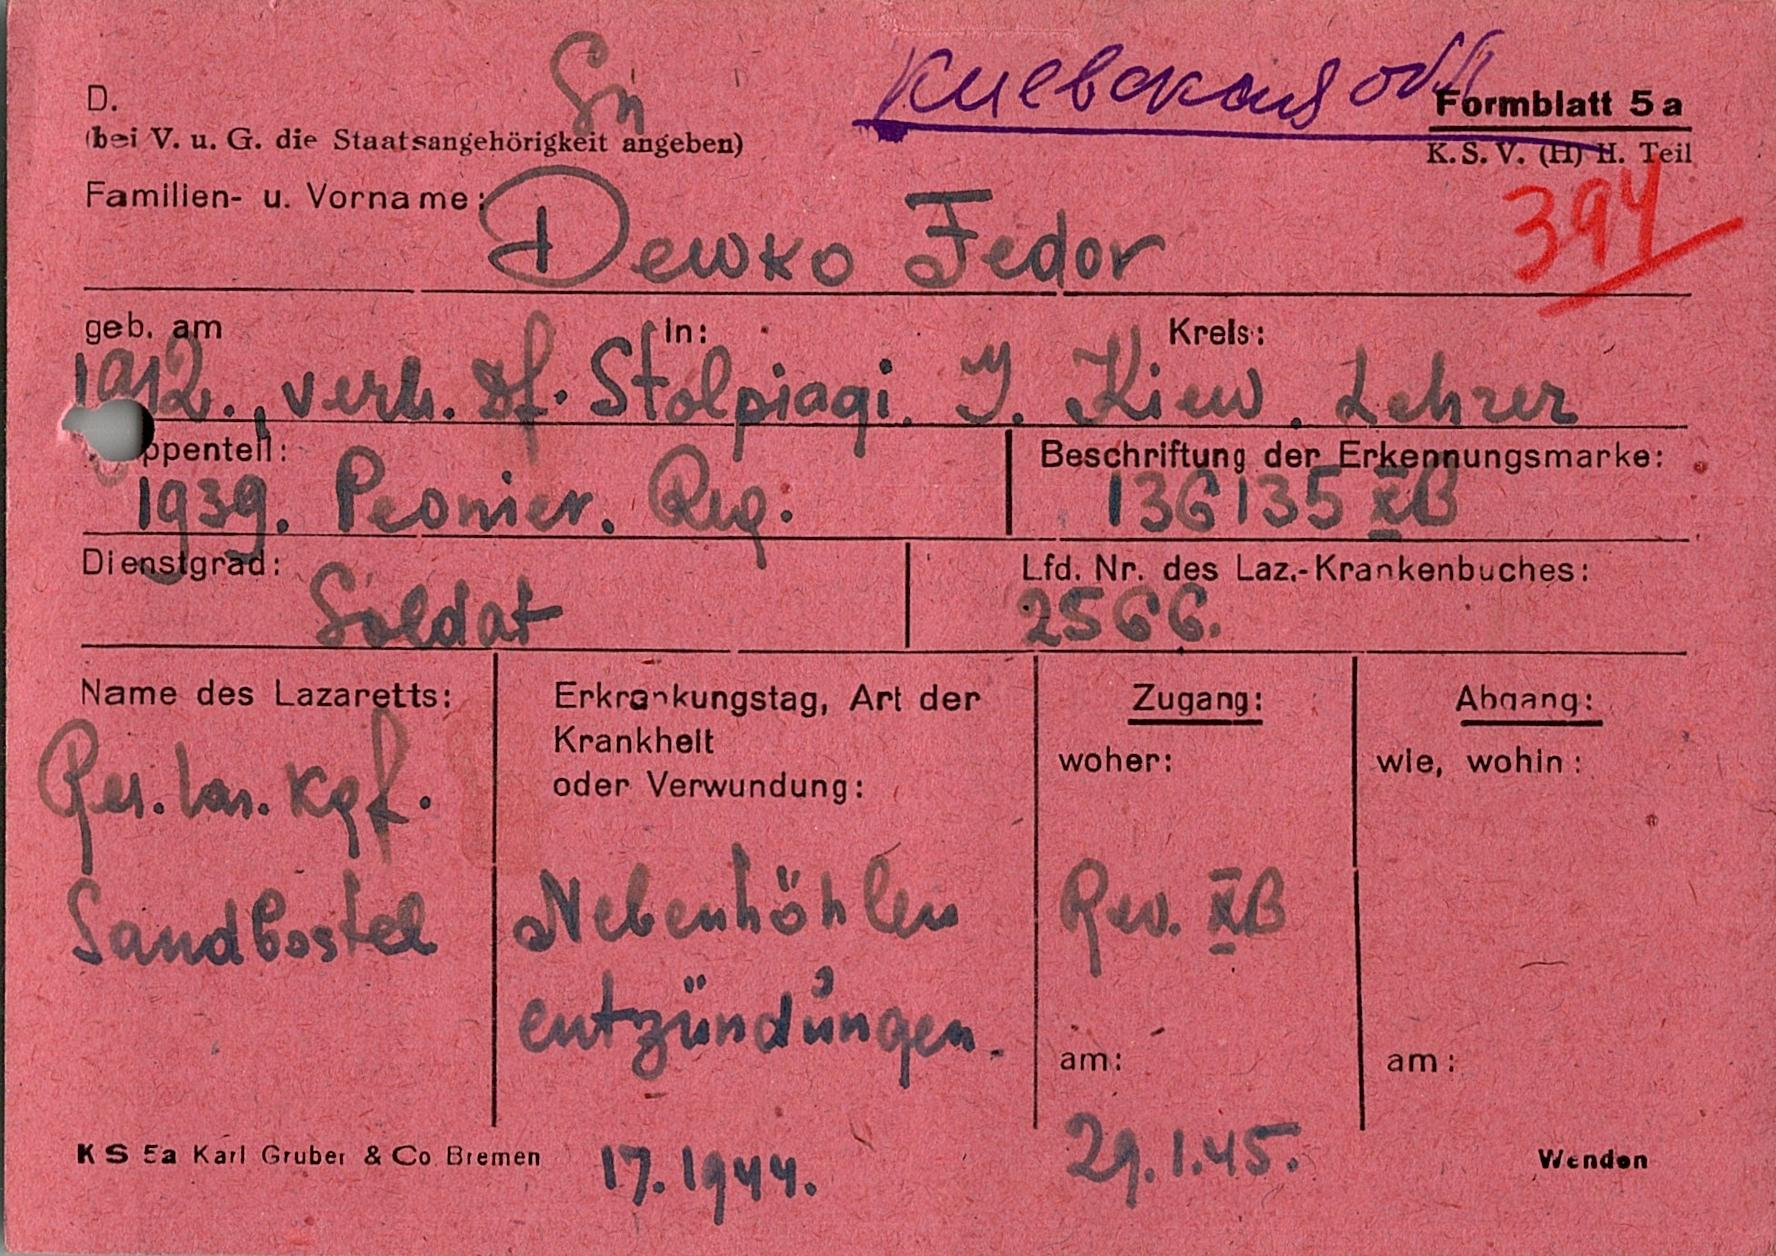 D.
киевская обл
Formblatt 5 a
(bei V. u. G. die Staatsangehörigkeit angeben)
K. S. V. (H) II. Teil
Familien- u. Vorname:
Dewko Fedor
394
geb. am In: Kreis:
1912., verh. Stolpiagi. Kiew. Lehrer
ppenteil: Beschriftung der Erkennungsmarke:
1939. Peonier. Reg: 136135 XB
Dienstgrad: Lfd. Nr. des Laz.-Krankenbuches:
Soldat 2566.
Name des Lazaretts: Erkrankungstag, Art der Krankheit oder Verwundung: Zugang: Abgang:
woher: wie, wohin:
Res. Laz. Kgf.
Sandbostel
Nebenhöhlen
entzündungen.
Rev. XB
am: am:
17.1944. 29.1.45.
KS 5a Karl Gruber & Co. Bremen
Wenden